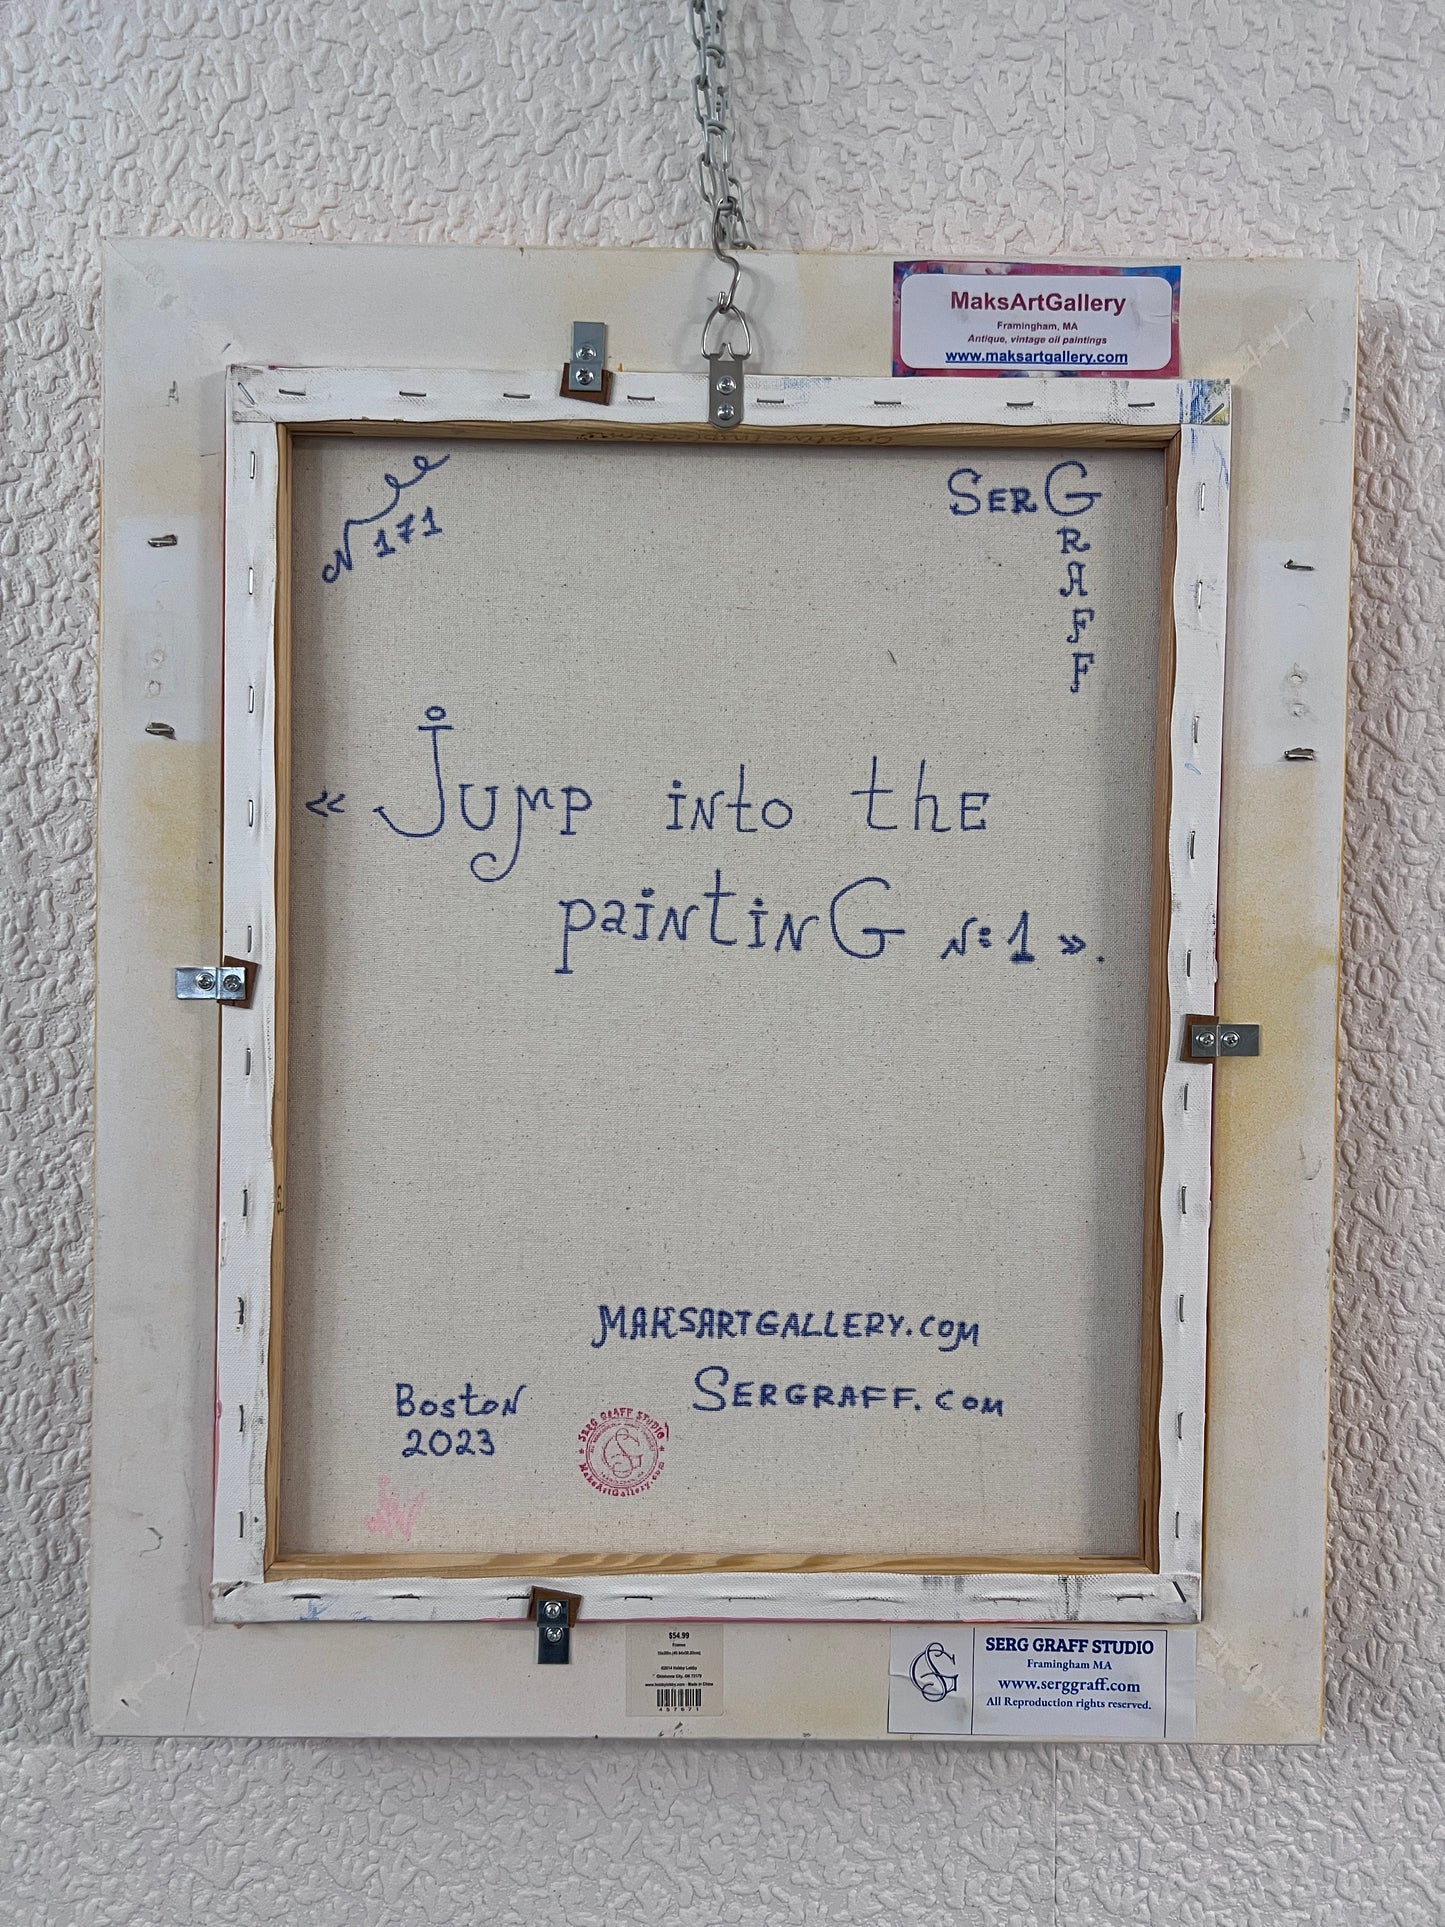 MaksArtGallery
Framingham, MA
Antique, vintage oil paintings
www.maksartgallery.com
N 171
SERGRAFF
« Jump into thE
paintinG №1 ».
MAKSARTGALLERY.COM
SERGRAFF.COM
Boston
2023
SERG GRAFF STUDIO
MaksArtGallery.com
$54.99
Frames
©2014 Hobby Lobby
Oklahoma City, OK 73179
www.hobbylobby.com - Made in China
457671
SERG GRAFF STUDIO
Framingham MA
www.serggraff.com
All Reproduction rights reserved.